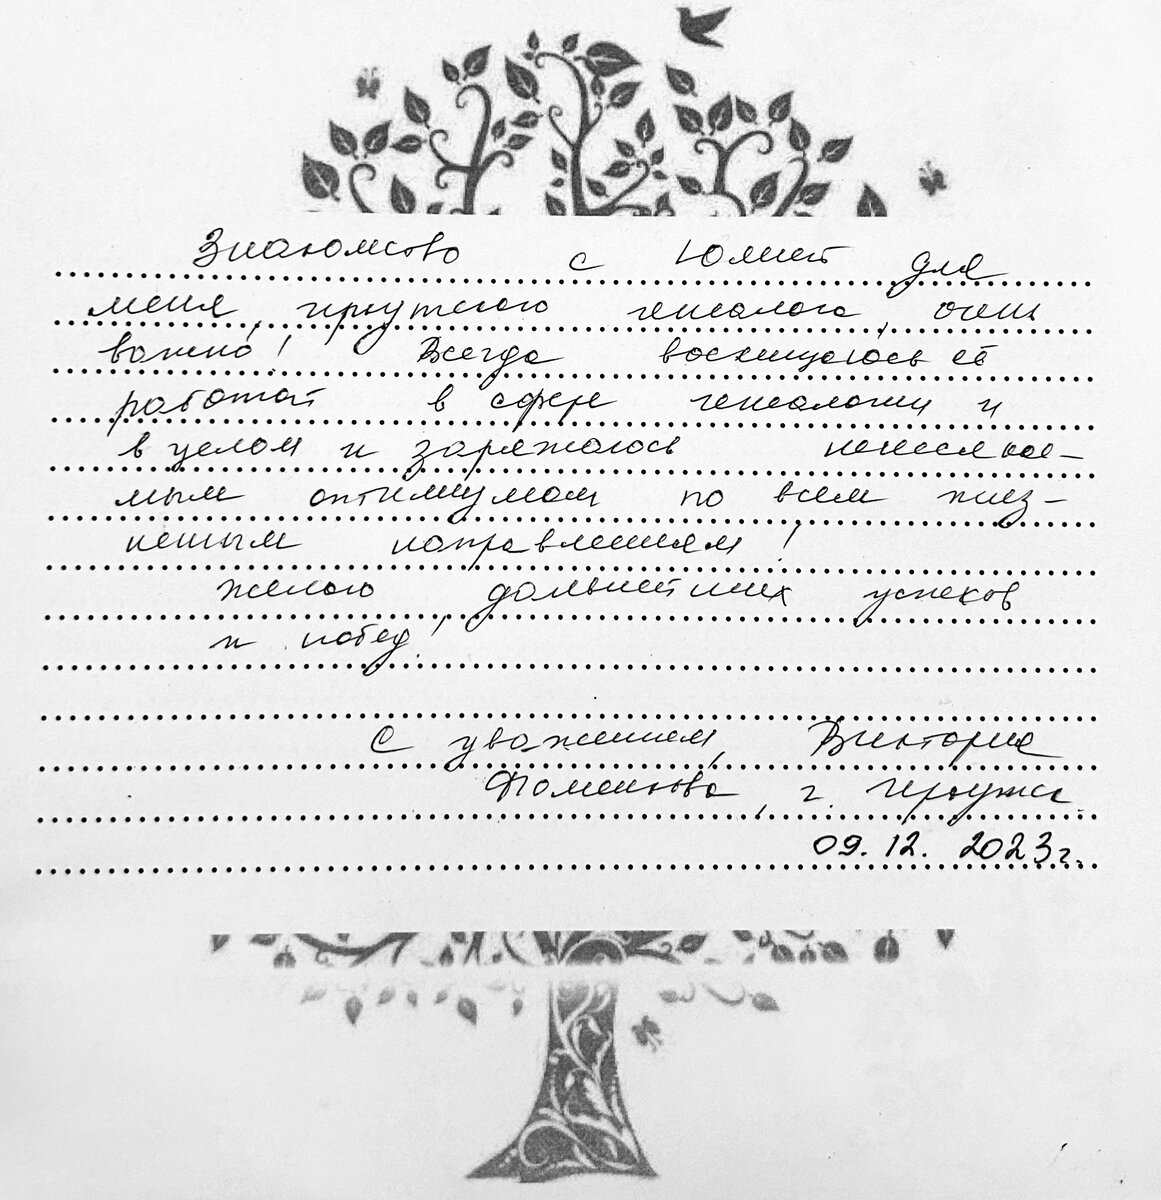 Знакомство с Юлией для
меня, иркутского генеалога, очень
важно! Всегда восхищаюсь её
работой в сфере генеалогии и
в целом и заряжаюсь неиссякае-
мым оптимизмом по всем жиз-
ненным направлениям!
Желаю дальнейших успехов
и побед!
С уважением, Виктория
г. Иркутск.
09.12.2023г.